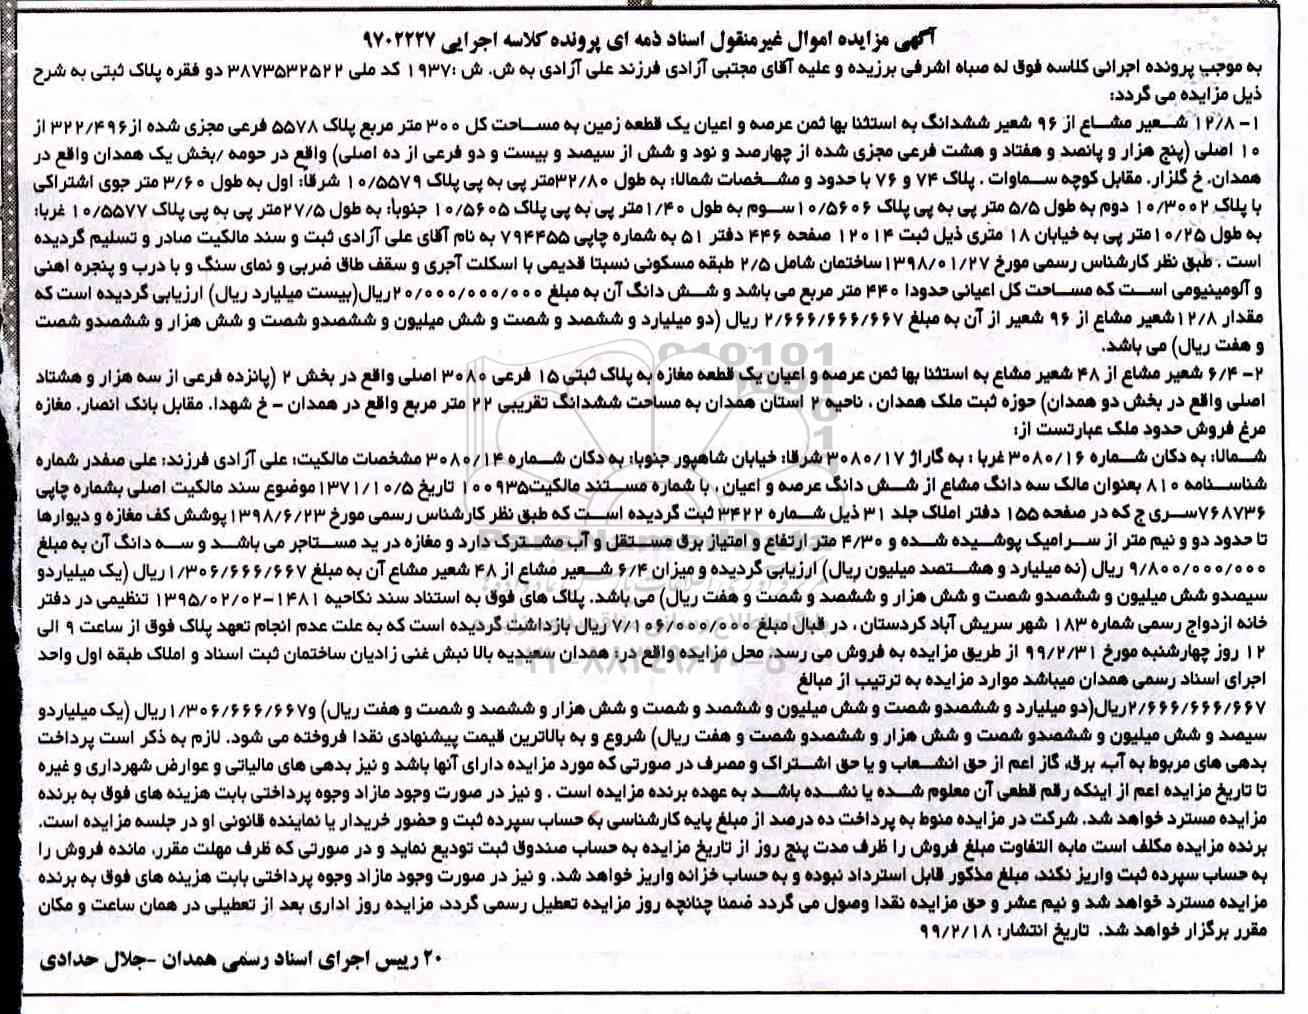 آگهی مزایده اموال غیرمنقول اسناد ذمه ای پرونده کلاسه اجرایی ۹۷۰۲۲۲۷
به موجب پرونده اجرائی کلاسه فوق له صباه اشرفی برزیده و علیه آقای مجتبی آزادی فرزند علی آزادی به ش. ش :۱۹۳۷ کد ملی ۳۸۷۳۵۳۲۵۲۲ دو فقره پلاک ثبتی به شرح
ذیل مزایده می گردد:
۱- ۱۲/۸ شعیر مشاع از ۹۶ شعیر ششدانگ به استثنا بها ثمن عرصه و اعیان یک قطعه زمین به مساحت کل ۳۰۰ متر مربع پلاک ۵۵۷۸ فرعی مجزی شده از ۳۲۲/۴۹۶ از
۱۰ اصلی (پنج هزار و پانصد و هفتاد و هشت فرعی مجزی شده از چهارصد و نود و شش از سیصد و بیست و دو فرعی از ده اصلی) واقع در حومه /بخش یک همدان واقع در
همدان. خ گلزار. مقابل کوچه سماوات . پلاک ۷۴ و ۷۶ با حدود و مشخصات شمالا: به طول ۳۲/۸۰متر پی به پی پلاک ۱۰/۵۵۷۹ شرقا: اول به طول ۳/۶۰ متر جوی اشتراکی
با پلاک ۱۰/۳۰۰۲ دوم به طول ۵/۵ متر پی به پی پلاک ۱۰/۵۶۰۶سوم به طول ۱/۴۰متر پی به پی پلاک ۱۰/۵۶۰۵ جنوبا: به طول ۲۷/۵متر پی به پی پلاک ۱۰/۵۵۷۷ غربا:
به طول ۱۰/۲۵متر پی به خیابان ۱۸ متری ذیل ثبت ۱۲۰۱۴ صفحه ۴۴۶ دفتر ۵۱ به شماره چاپی ۷۹۴۴۵۵ به نام آقای علی آزادی ثبت و سند مالکیت صادر و تسلیم گردیده
است . طبق نظر کارشناس رسمی مورخ ۱۳۹۸/۰۱/۲۷ساختمان شامل ۲/۵ طبقه مسکونی نسبتا قدیمی با اسکلت آجری و سقف طاق ضربی و نمای سنگ و با درب و پنجره اهنی
و آلومینیومی است که مساحت کل اعیانی حدودا ۴۴۰ متر مربع می باشد و شش دانگ آن به مبلغ ۲۰/۰۰۰/۰۰۰/۰۰۰ریال(بیست میلیارد ریال) ارزیابی گردیده است که
مقدار ۱۲/۸شعیر مشاع از ۹۶ شعیر از آن به مبلغ ۲/۶۶۶/۶۶۶/۶۶۷ ریال (دو میلیارد و ششصد و شصت و شش میلیون و ششصدو شصت و شش هزار و ششصدو شصت
و هفت ریال) می باشد.
۲- ۶/۴ شعیر مشاع از ۴۸ شعیر مشاع به استثنا بها ثمن عرصه و اعیان یک قطعه مغازه به پلاک ثبتی ۱۵ فرعی ۳۰۸۰ اصلی واقع در بخش ۲ (پانزده فرعی از سه هزار و هشتاد
اصلی واقع در بخش دو همدان) حوزه ثبت ملک همدان ، ناحیه ۲ استان همدان به مساحت ششدانگ تقریبی ۲۲ متر مربع واقع در همدان – خ شهدا. مقابل بانک انصار. مغازه
مرغ فروش حدود ملک عبارتست از:
شمالا: به دکان شماره ۳۰۸۰/۱۶ غربا : به گاراژ ۳۰۸۰/۱۷ شرقا: خیابان شاهپور جنوبا: به دکان شماره ۳۰۸۰/۱۴ مشخصات مالکیت: علی آزادی فرزند: علی صفدر شماره
شناسنامه ۸۱۰ بعنوان مالک سه دانگ مشاع از شش دانگ عرصه و اعیان ، با شماره مستند مالکیت۱۰۰۹۳۵ تاریخ ۱۳۷۱/۱۰/۵موضوع سند مالکیت اصلی بشماره چاپی
۷۶۸۷۳۶سری ج که در صفحه ۱۵۵ دفتر املاک جلد ۳۱ ذیل شماره ۳۴۲۲ ثبت گردیده است که طبق نظر کارشناس رسمی مورخ ۱۳۹۸/۶/۲۳پوشش کف مغازه و دیوارها
تا حدود دو و نیم متر از سرامیک پوشیده شده و ۴/۳۰ متر ارتفاع و امتیاز برق مستقل و آب مشترک دارد و مغازه در ید مستاجر می باشد و سه دانگ آن به مبلغ
۹/۸۰۰/۰۰۰/۰۰۰ ریال (نه میلیارد و هشتصد میلیون ریال) ارزیابی گردیده و میزان ۶/۴ شعیر مشاع از ۴۸ شعیر مشاع آن به مبلغ ۱/۳۰۶/۶۶۶/۶۶۷ریال (یک میلیاردو
سیصدو شش میلیون و ششصدو شصت و شش هزار و ششصد و شصت و هفت ریال) می باشد. پلاک های فوق به استناد سند نکاحیه ۱۴۸۱-۱۳۹۵/۰۲/۰۲ تنظیمی در دفتر
خانه ازدواج رسمی شماره ۱۸۳ شهر سریش آباد کردستان ، در قبال مبلغ ۷/۱۰۶/۰۰۰/۰۰۰ ریال بازداشت گردیده است که به علت عدم انجام تعهد پلاک فوق از ساعت ۹ الی
۱۲ روز چهارشنبه مورخ ۹۹/۲/۳۱ از طریق مزایده به فروش می رسد. محل مزایده واقع در: همدان سعیدیه بالا نبش غنی زادیان ساختمان ثبت اسناد و املاک طبقه اول واحد
اجرای اسناد رسمی همدان میباشد موارد مزایده به ترتیب از مبالغ
۲/۶۶۶/۶۶۶/۶۶۷ریال(دو میلیارد و ششصدو شصت و شش میلیون و ششصد و شصت و شش هزار و ششصد و شصت و هفت ریال) و۱/۳۰۶/۶۶۶/۶۶۷ریال (یک میلیاردو
سیصد و شش میلیون و ششصدو شصت و شش هزار و ششصدو شصت و هفت ریال) شروع و به بالاترین قیمت پیشنهادی نقدا فروخته می شود. لازم به ذکر است پرداخت
بدهی های مربوط به آب، برق، گاز اعم از حق انشعاب و یا حق اشتراک و مصرف در صورتی که مورد مزایده دارای آنها باشد و نیز بدهی های مالیاتی و عوارض شهرداری و غیره
تا تاریخ مزایده اعم از اینکه رقم قطعی آن معلوم شده یا نشده باشد به عهده برنده مزایده است . و نیز در صورت وجود مازاد وجوه پرداختی بابت هزینه های فوق به برنده
مزایده مسترد خواهد شد. شرکت در مزایده منوط به پرداخت ده درصد از مبلغ پایه کارشناسی به حساب سپرده ثبت و حضور خریدار یا نماینده قانونی او در جلسه مزایده است.
برنده مزایده مکلف است مابه التفاوت مبلغ فروش را ظرف مدت پنج روز از تاریخ مزایده به حساب صندوق ثبت تودیع نماید و در صورتی که ظرف مهلت مقرر، مانده فروش را
به حساب سپرده ثبت واریز نکند، مبلغ مذکور قابل استرداد نبوده و به حساب خزانه واریز خواهد شد. و نیز در صورت وجود مازاد وجوه پرداختی بابت هزینه های فوق به برنده
مزایده مسترد خواهد شد و نیم عشر و حق مزایده نقدا وصول می گردد ضمنا چنانچه روز مزایده تعطیل رسمی گردد، مزایده روز اداری بعد از تعطیلی در همان ساعت و مکان
مقرر برگزار خواهد شد. تاریخ انتشار: ۹۹/۲/۱۸
۲۰ رییس اجرای اسناد رسمی همدان -جلال حدادی